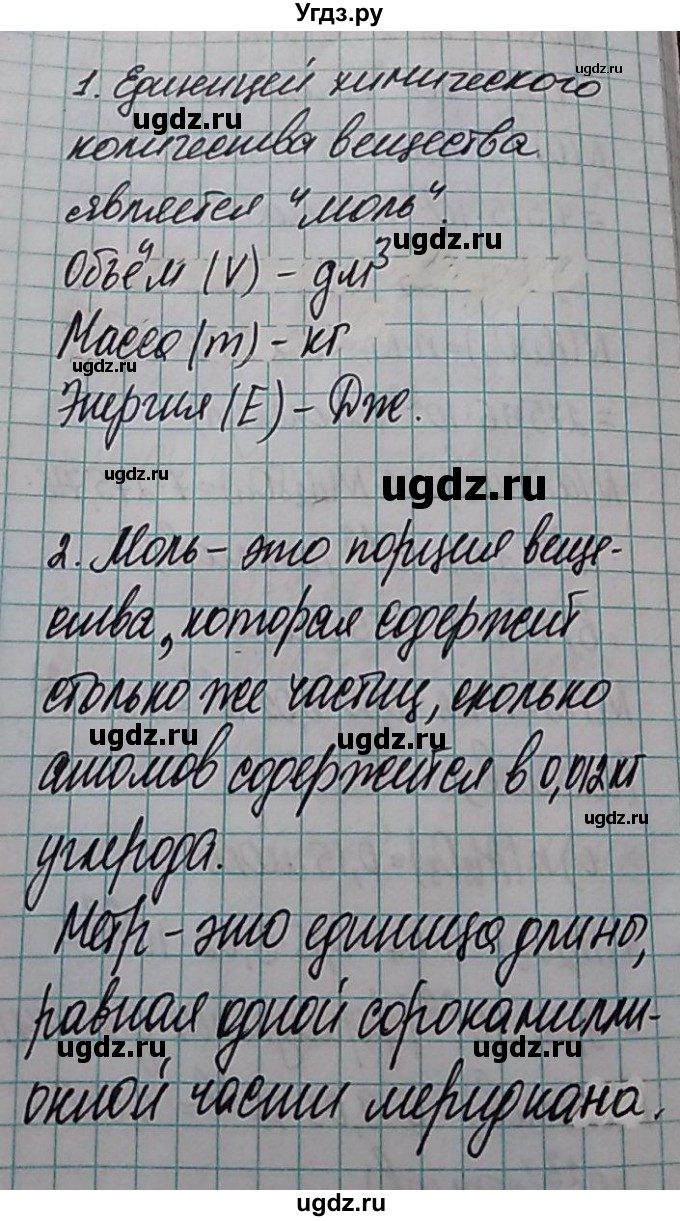 Угдз.ру
ugdz.ru
1. Единицей химического
ugdz.ru
количества вещества
является "моль".
ugdz.ru
Объём (V) - дм³
Масса (m) - кг
ugdz.ru
Энергия (E) - Дж.
ugdz.ru
ugdz.ru
2. Моль - это порция веще-
ства, которая содержит
столько же частиц, сколько
ugdz.ru
ugdz.ru
атомов содержится в 0,012 кг
ugdz.ru
углерода.
Метр - это единица длины,
равная одной сорокамилли-
ugdz.ru
ugdz.ru
онной части меридиана.
ugdz.ru